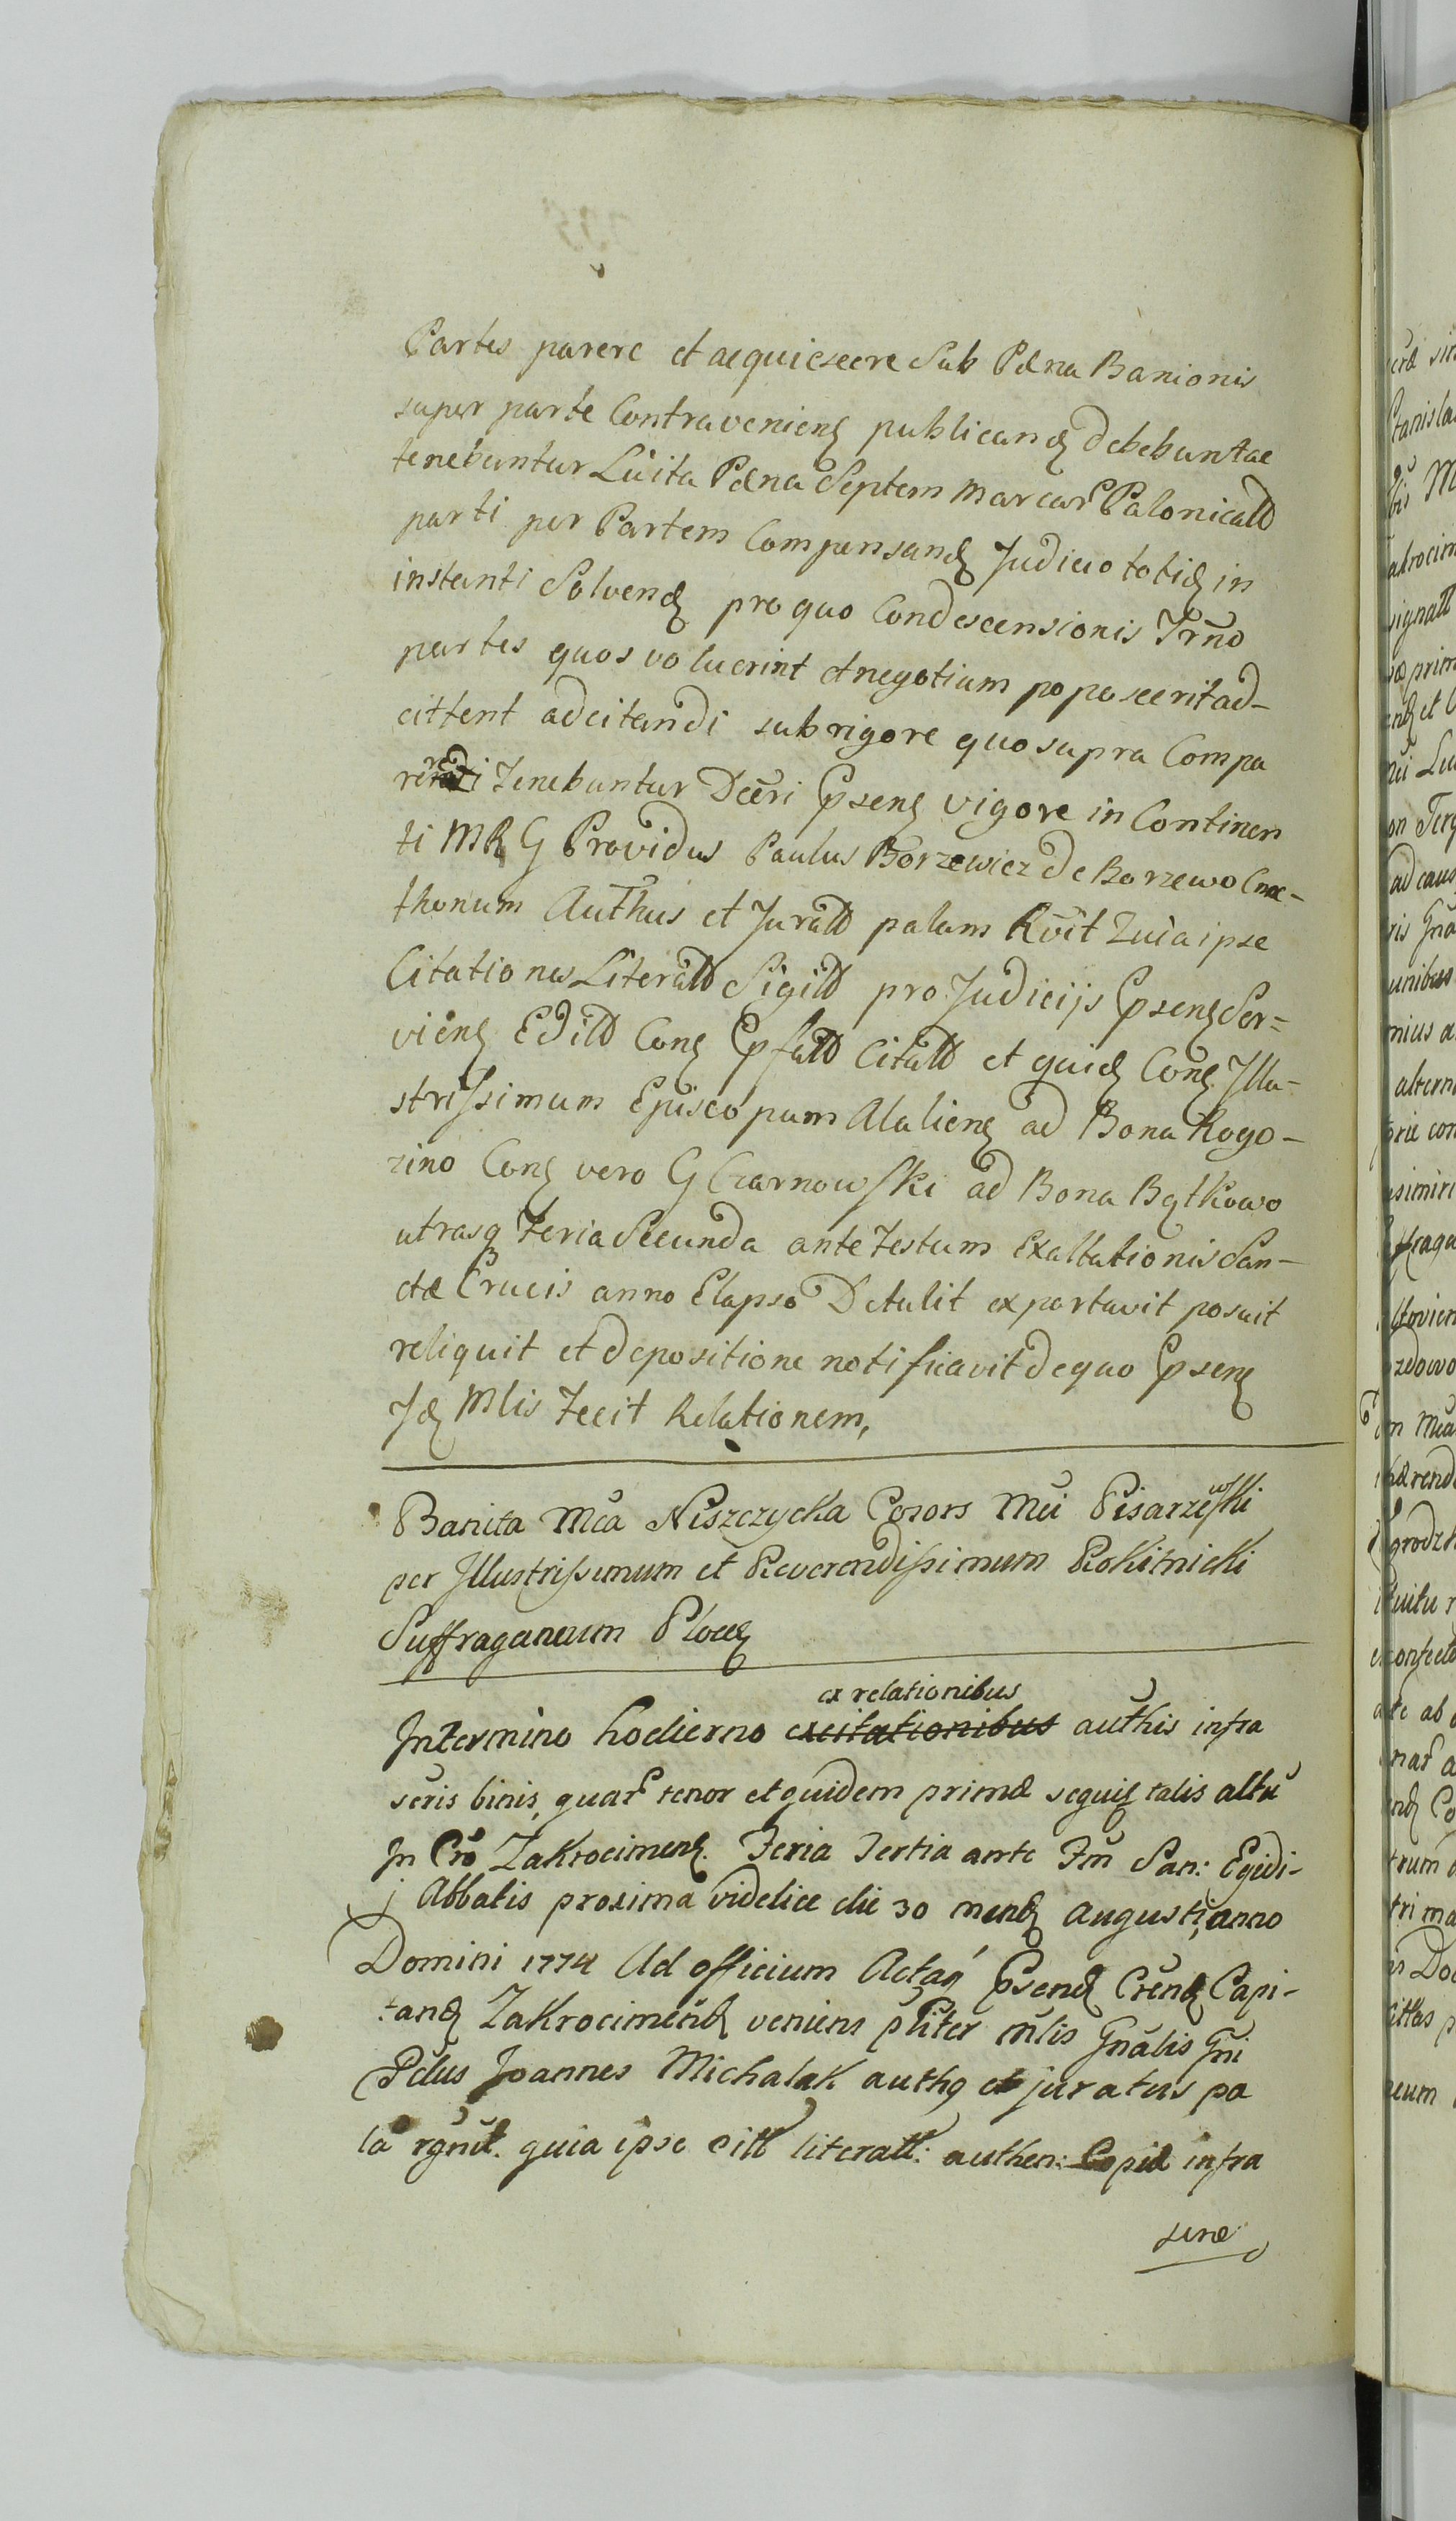 Partes parere et acquiescere Sub Pæna Banionis
super parte Contravenienֿ publicandֿ debebunt ac
tenebuntur Luita Pæna Septem Marcar Polonicall
parti per Partem Compensandֿ Judicio totidֿ in
instanti Solvendֿ pro quo Condescensionis Trno
partes quos voluerint et negotium poposcerit ad-
cittent adcitandi sub rigore quo supra Compa
rendi Tenebuntur Dcri Psenֿ vigore in Continen
ti MRG Providus Paulus Borzewicz de Borzewo Cme-
thonum Authus et Juratt palam Rvit Quia ipse
Citationes Literatt Sigill pro Judicijs Psenֿ Ser=
vienֿ Edill Conֿ Pfatt Citatt et quidֿ Conֿ Illu-
strissimum Episcopum Alalienֿ ad Bona Rogo-
zino Conֿ vero G Czarnowski ad Bona Bątkowo
utrasq Feria Secunda ante Festum Exaltationis San-
ctæ Crucis anno Elapso Detulit exportavit posuit
reliquit et depositione notificavit de quo Psenֿ
Jdֿ Mlis Fecit Relationem,
Banita Mca Niszczycka Cosors Mci Pisarzewski
per Illustrissimum et Reverendissimum Rokitnicki
Suffraganeum Plocenֿ
ex relationibus
In termino hodierno excitationibus authis infra
scris binis, quar tenor et quidem primæ sequiֿ talis altu
In Cro Zakrocimenֿ. Feria Tertia ante Fm San: Egidi-
j Abbatis proxima videlice die 30 mensֿ Augusti, anno
Domini 1774 Ad officium Actaq Psenֿ Crenֿ Capi-
tanֿ Zakrocimenֿ veniens pliter mlis Gnalis Gni
Pdus Joannes Michalak authq et juratus pa
la rgnit. quia ipse citt literatt: authen: Copiæ infra
scræ